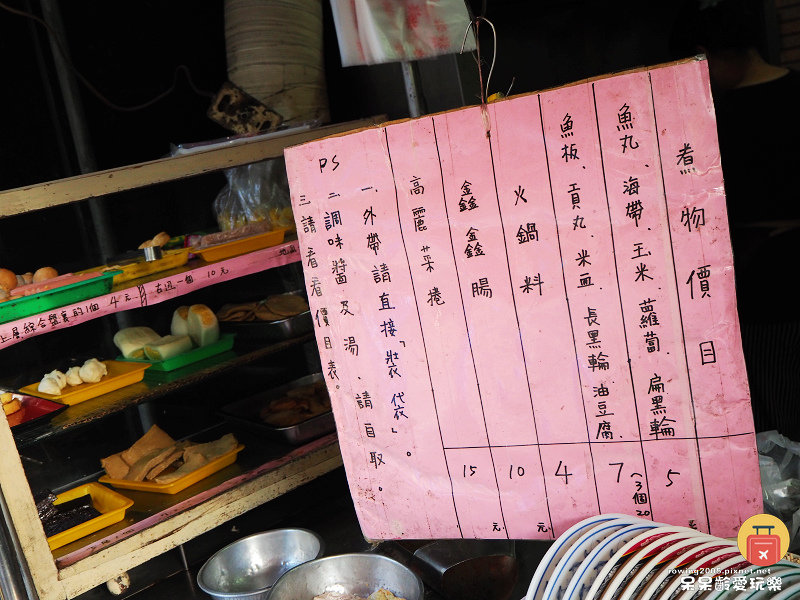 煮物價目
魚丸、海帶、玉米、蘿蔔、扁黑輪 5元
魚板、貢丸、米血、長黑輪、油豆腐. 7(3個20
火鍋料 4元
鑫鑫腸 10元
高麗菜捲 15元
PS
一、外帶請直接「裝袋」。
二、調味醬及湯、請自取。
三、請看看價目表。
上層綜合盤裝的1個4元
古迅一個10元
rowing2005.pixnet.net
呆呆齡愛玩樂